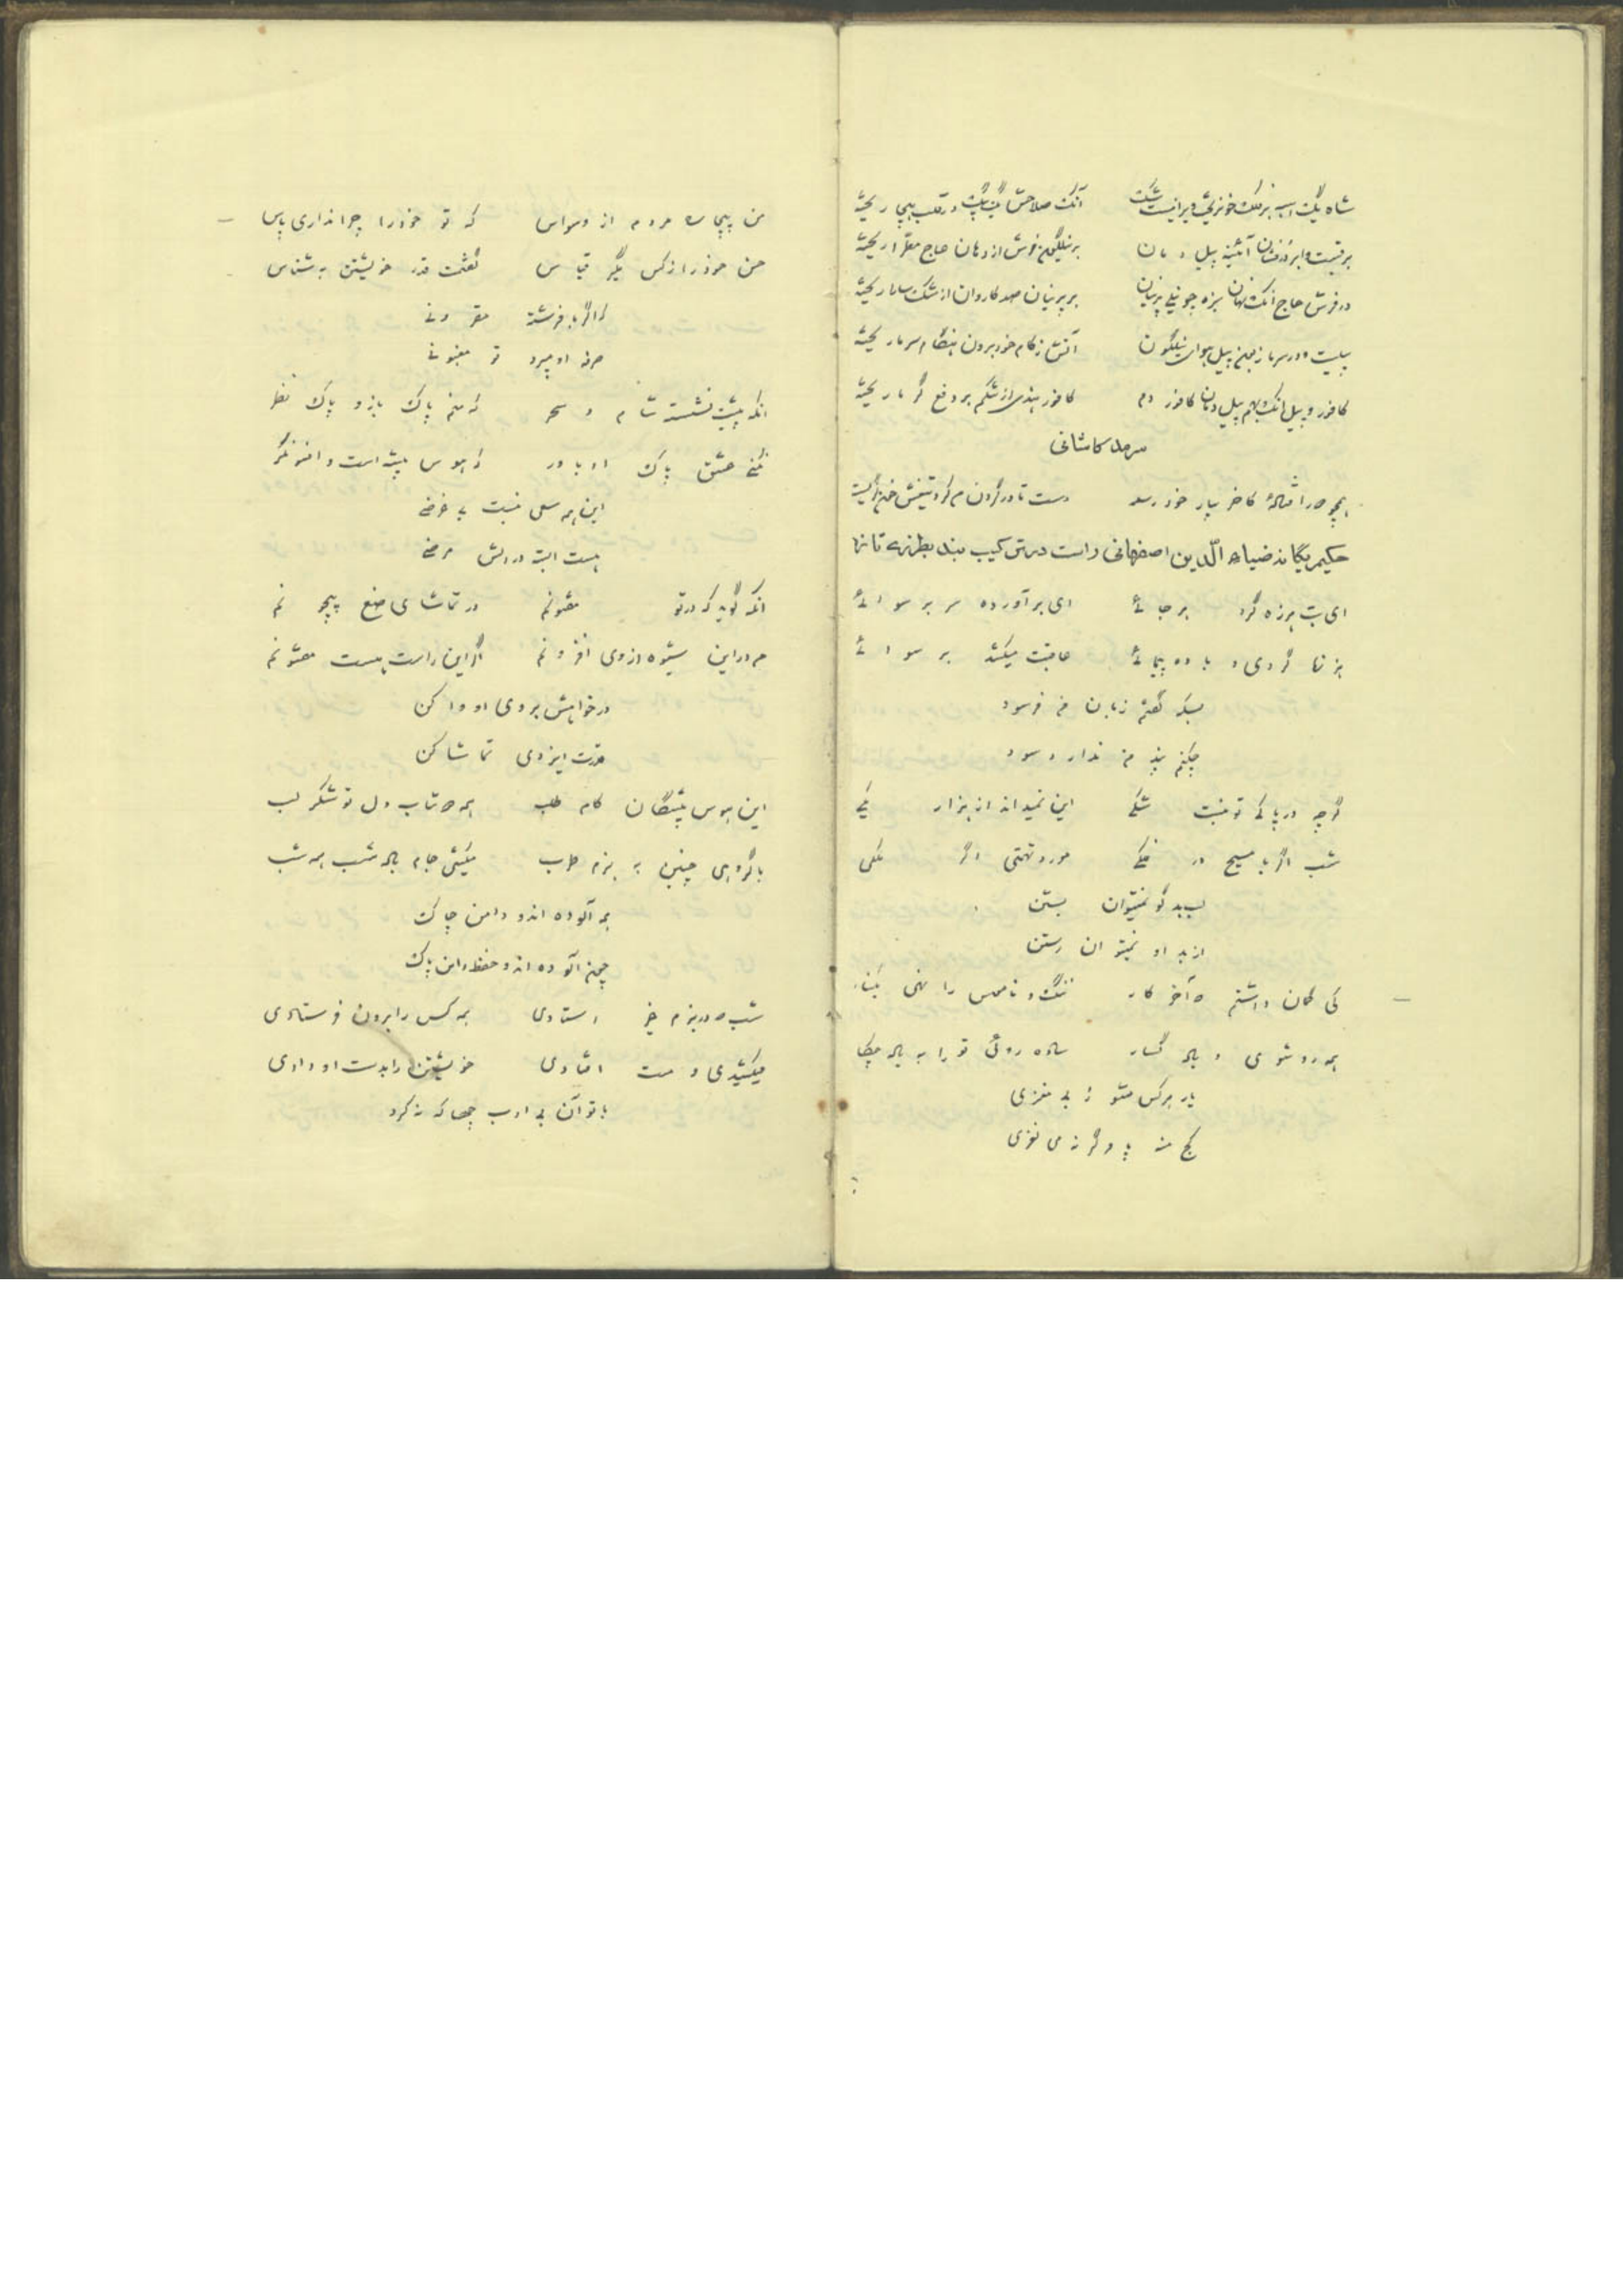 شاه یک اسبه بر فلک خونریخته ویرانیست شک آنک سلاحش یک بیک در قلب هیجا ریخته
برقیست و ابر درفشان آئینه پیل دمان بر نیلگون خوش از دهان عاج مطرا ریخته
در فرش عاج آنک نهان سبزه چو نیلی پرنیان بر پرنیان صد کاروان از مشک سارا ریخته
پیلیست در سر باز بین پیل هوای نیلگون آتش ز کام خود برون هنگام سرما ریخته
کافور و پیل آنک بهم پیل دمان کافور دم کافور هندی از شکم بر دفع گرما ریخته
سرمد کاشانی
دست تا در گردنم کرد تیغش خون گریست
حکیم یگانه ضیاء الدین اصفهانی راست در ترکیب بند بطرزی تازه
ای بت هرزه گرد هر جائی ای برآورده سر بر سوائی
هرزه گردی و باده پیمائی عاقبت میکشد بر سوائی
بسکه گفتم زبان من فرسود
چکنم پند من ندارد سود
گرچه در پاکی تو نیست شکی این نمیداند از هزار یکی
شب اگر با مسیح در فلکی مورد تهمتی اگر ملکی
لب بدگو نمیتوان بستن
از بد او نمیتوان رستن
کی گمان داشتم که آخر کار ننگ و ناموس را نهی بکنار
همه رو شوی و پیاله گسار ساده روئی تو را به پیاله چکار
یار هر کس مشو ز بی مغزی
کج منه پا وگرنه می لغزی
من بیچاره مردم از وسواس که تو خود را چرا نداری پاس
حسن خود را ز کس مگیر قیاس گفتمت قدر خویشتن بشناس
که اگر با فرشته مقرونی
صرفه او میبرد تو مغبونی
آنکه پیشت نشسته شام و سحر که منم پاک باز و پاک نظر
نکنی عشق پاک او باور که هوس پیشه است و افسونگر
این همه سعی نیست بی غرضی
هست البته در دلش مرضی
آنکه گوید که در تو مفتونم در تماشای صنع بیچونم
من در این شیوه از وی افزونم اگر این راست هست مفتونم
در خواهش بروی او وا کن
قدرت ایزدی تماشا کن
این هوس پیشگان کام طلب همه بیتاب دل تو شکر لب
با گروهی چنین به بزم طرب میکشی جام پیاله شب همه شب
همه آلوده اند و دامن چاک
چون آلوده اند و حفظ دامن پاک
شب که در بزم غیر استادی همه کس را برون فرستادی
میکشیدی و مست افتادی خویشتن را بدست او دادی
با تو آن بی ادب چها که نکرد